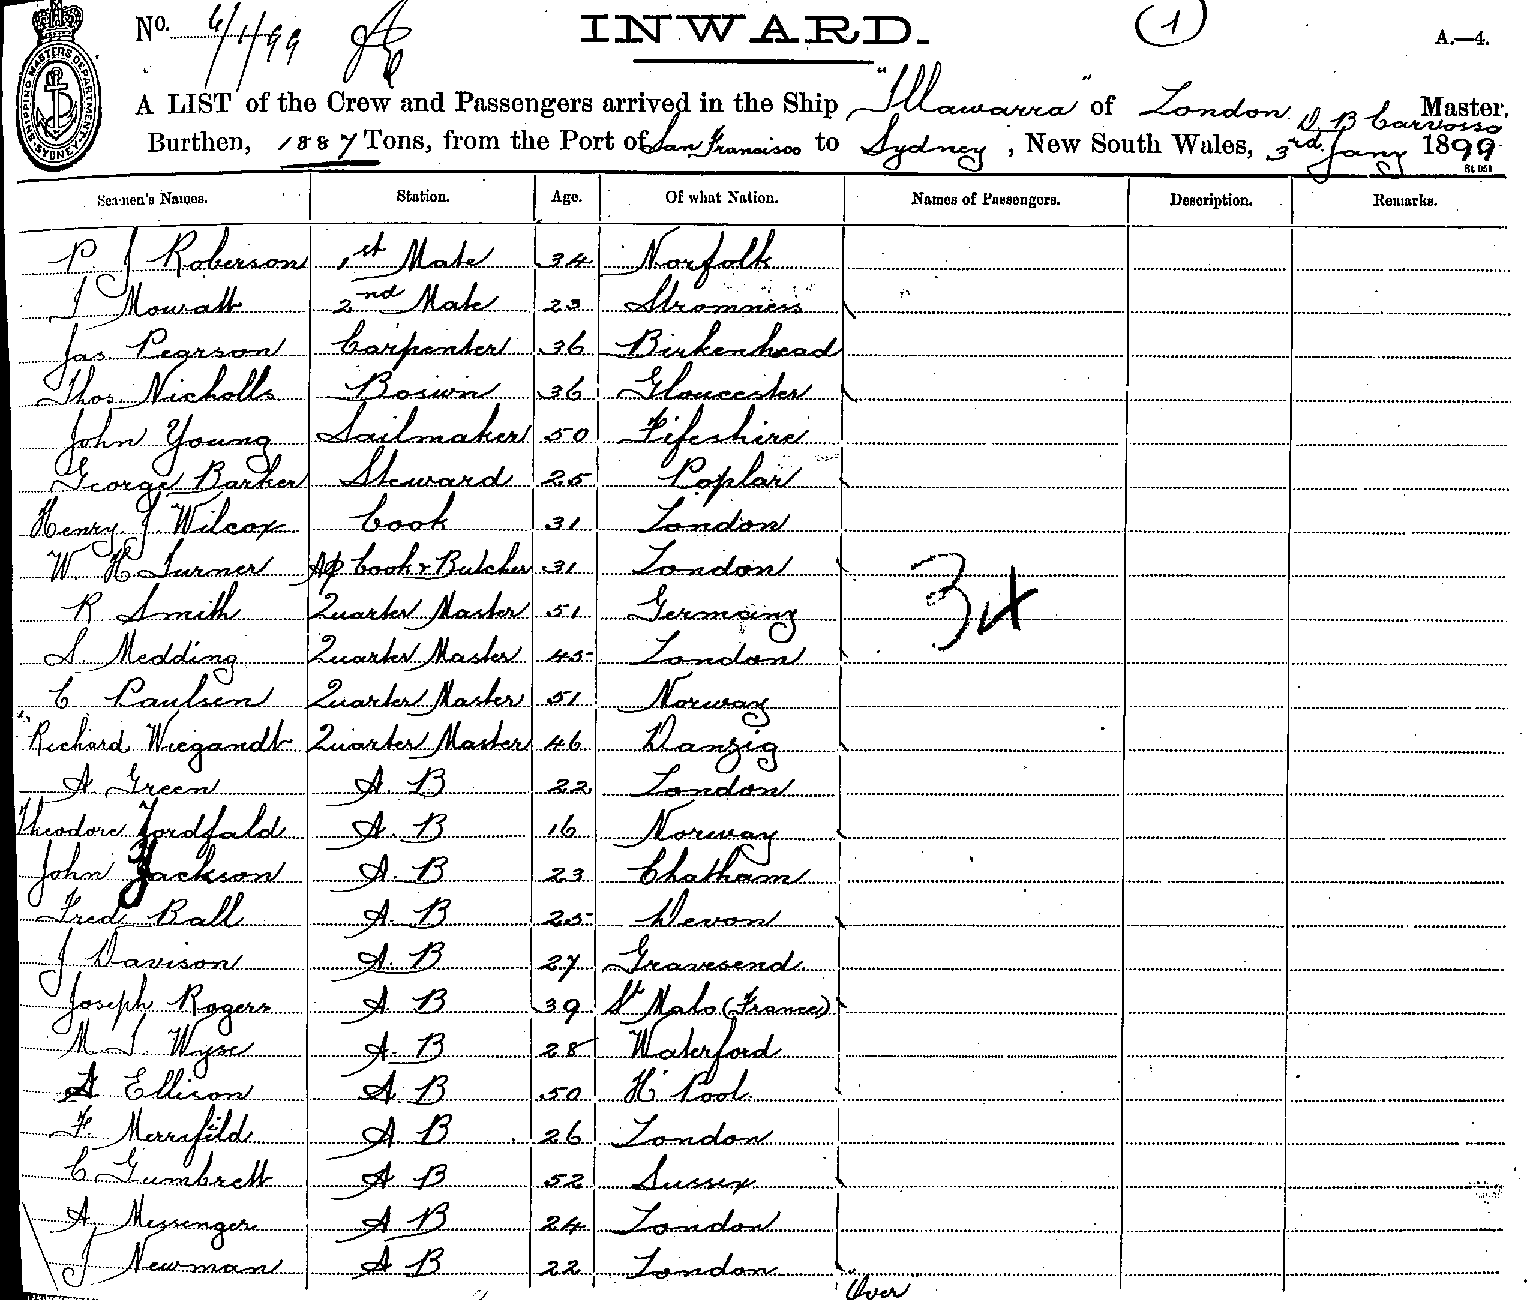 No. 6/1/99
INWARD.
1
A.—4.
SHIPPING MASTERS DEPARTMENT SYDNEY
A LIST of the Crew and Passengers arrived in the Ship "Illawarra" of London D B Carvosso Master,
Burthen, 1887 Tons, from the Port of San Francisco to Sydney, New South Wales, 3rd Jany 1899
Seamen's Names. Station. Age. Of what Nation. Names of Passengers. Description. Remarks.
P J Roberson 1st Mate 34 Norfolk
J Mowatt 2nd Mate 23 Stromness
Jas Pearson Carpenter 36 Birkenhead
Thos Nicholls Boswn 36 Gloucester
John Young Sailmaker 50 Fifeshire
George Barker Steward 25 Poplar
Henry J Wilcox Cook 31 London
W. H Turner Cook & Butcher 31 London
34
R Smith Quarter Master 51 Germany
S. Medding Quarter Master 45 London
C Paulsen Quarter Master 51 Norway
Richard Wiegandt Quarter Master 46 Danzig
A Green A B 22 London
Theodore Fordfald A. B 16 Norway
John Jackson A. B 23 Chatham
Fred Ball A. B 25 Devon
J Davison A. B 27 Gravesend
Joseph Rogers A B 39 St Malo (France)
M. J. Wyse A. B 28 Waterford
A Ellison A B 50 H' Pool
F. Merrifild A B 26 London
C Gumbrett A B 52 Sussex
A. Messenger A B 24 London
J Newman A B 22 London
Over